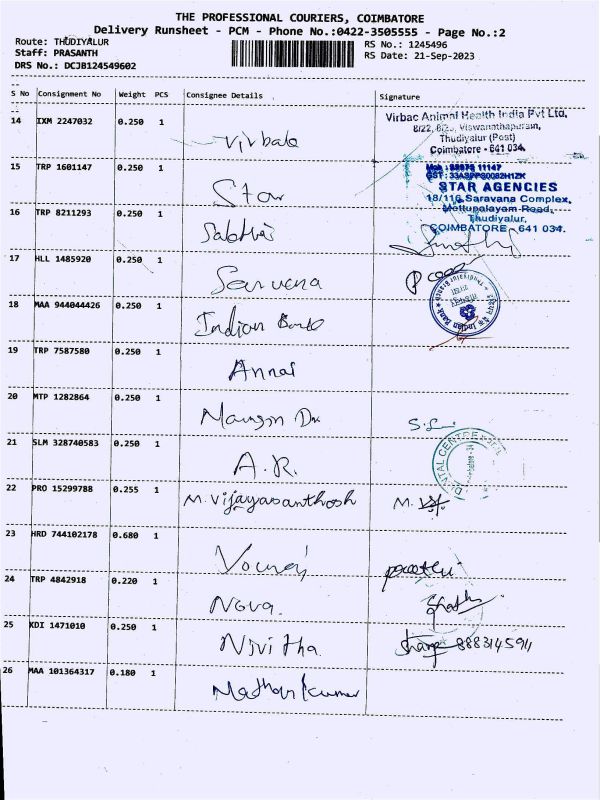 THE PROFESSIONAL COURIERS, COIMBATORE
Delivery Runsheet - PCM - Phone No.:0422-3505555 - Page No.:2
Route: THUDIYALUR
RS No.: 1245496
Staff: PRASANTH
RS Date: 21-Sep-2023
DRS No.: DCJB124549602
S No Consignment No Weight PCS Consignee Details Signature
14 IXM 2247032 0.250 1
Virbac Animal Health India Pvt Ltd,
Viswanathapuram,
Thudiyalur (Post)
Coimbatore - 641 034.
15 TRP 1601147 0.250 1 Star
STAR AGENCIES
18/116 Saravana Complex,
Mettupalayam Road,
Thudiyalur,
COIMBATORE 641 034.
16 TRP 8211293 0.250 1
17 HLL 1485920 0.250 1
18 MAA 944044426 0.250 1 Indian Bank
Indian Bank
19 TRP 7587580 0.250 1 Annai
20 MTP 1282864 0.250 1
21 SLM 328740583 0.250 1 A.R.
DENTAL CENTRE
22 PRO 15299788 0.255 1 M. Vijayasanthosh M.
23 HRD 744102178 0.680 1
24 TRP 4842918 0.220 1 Nova.
25 KDI 1471010 0.250 1 Nivitha 8883145911
26 MAA 101364317 0.180 1 Mathan Kumar